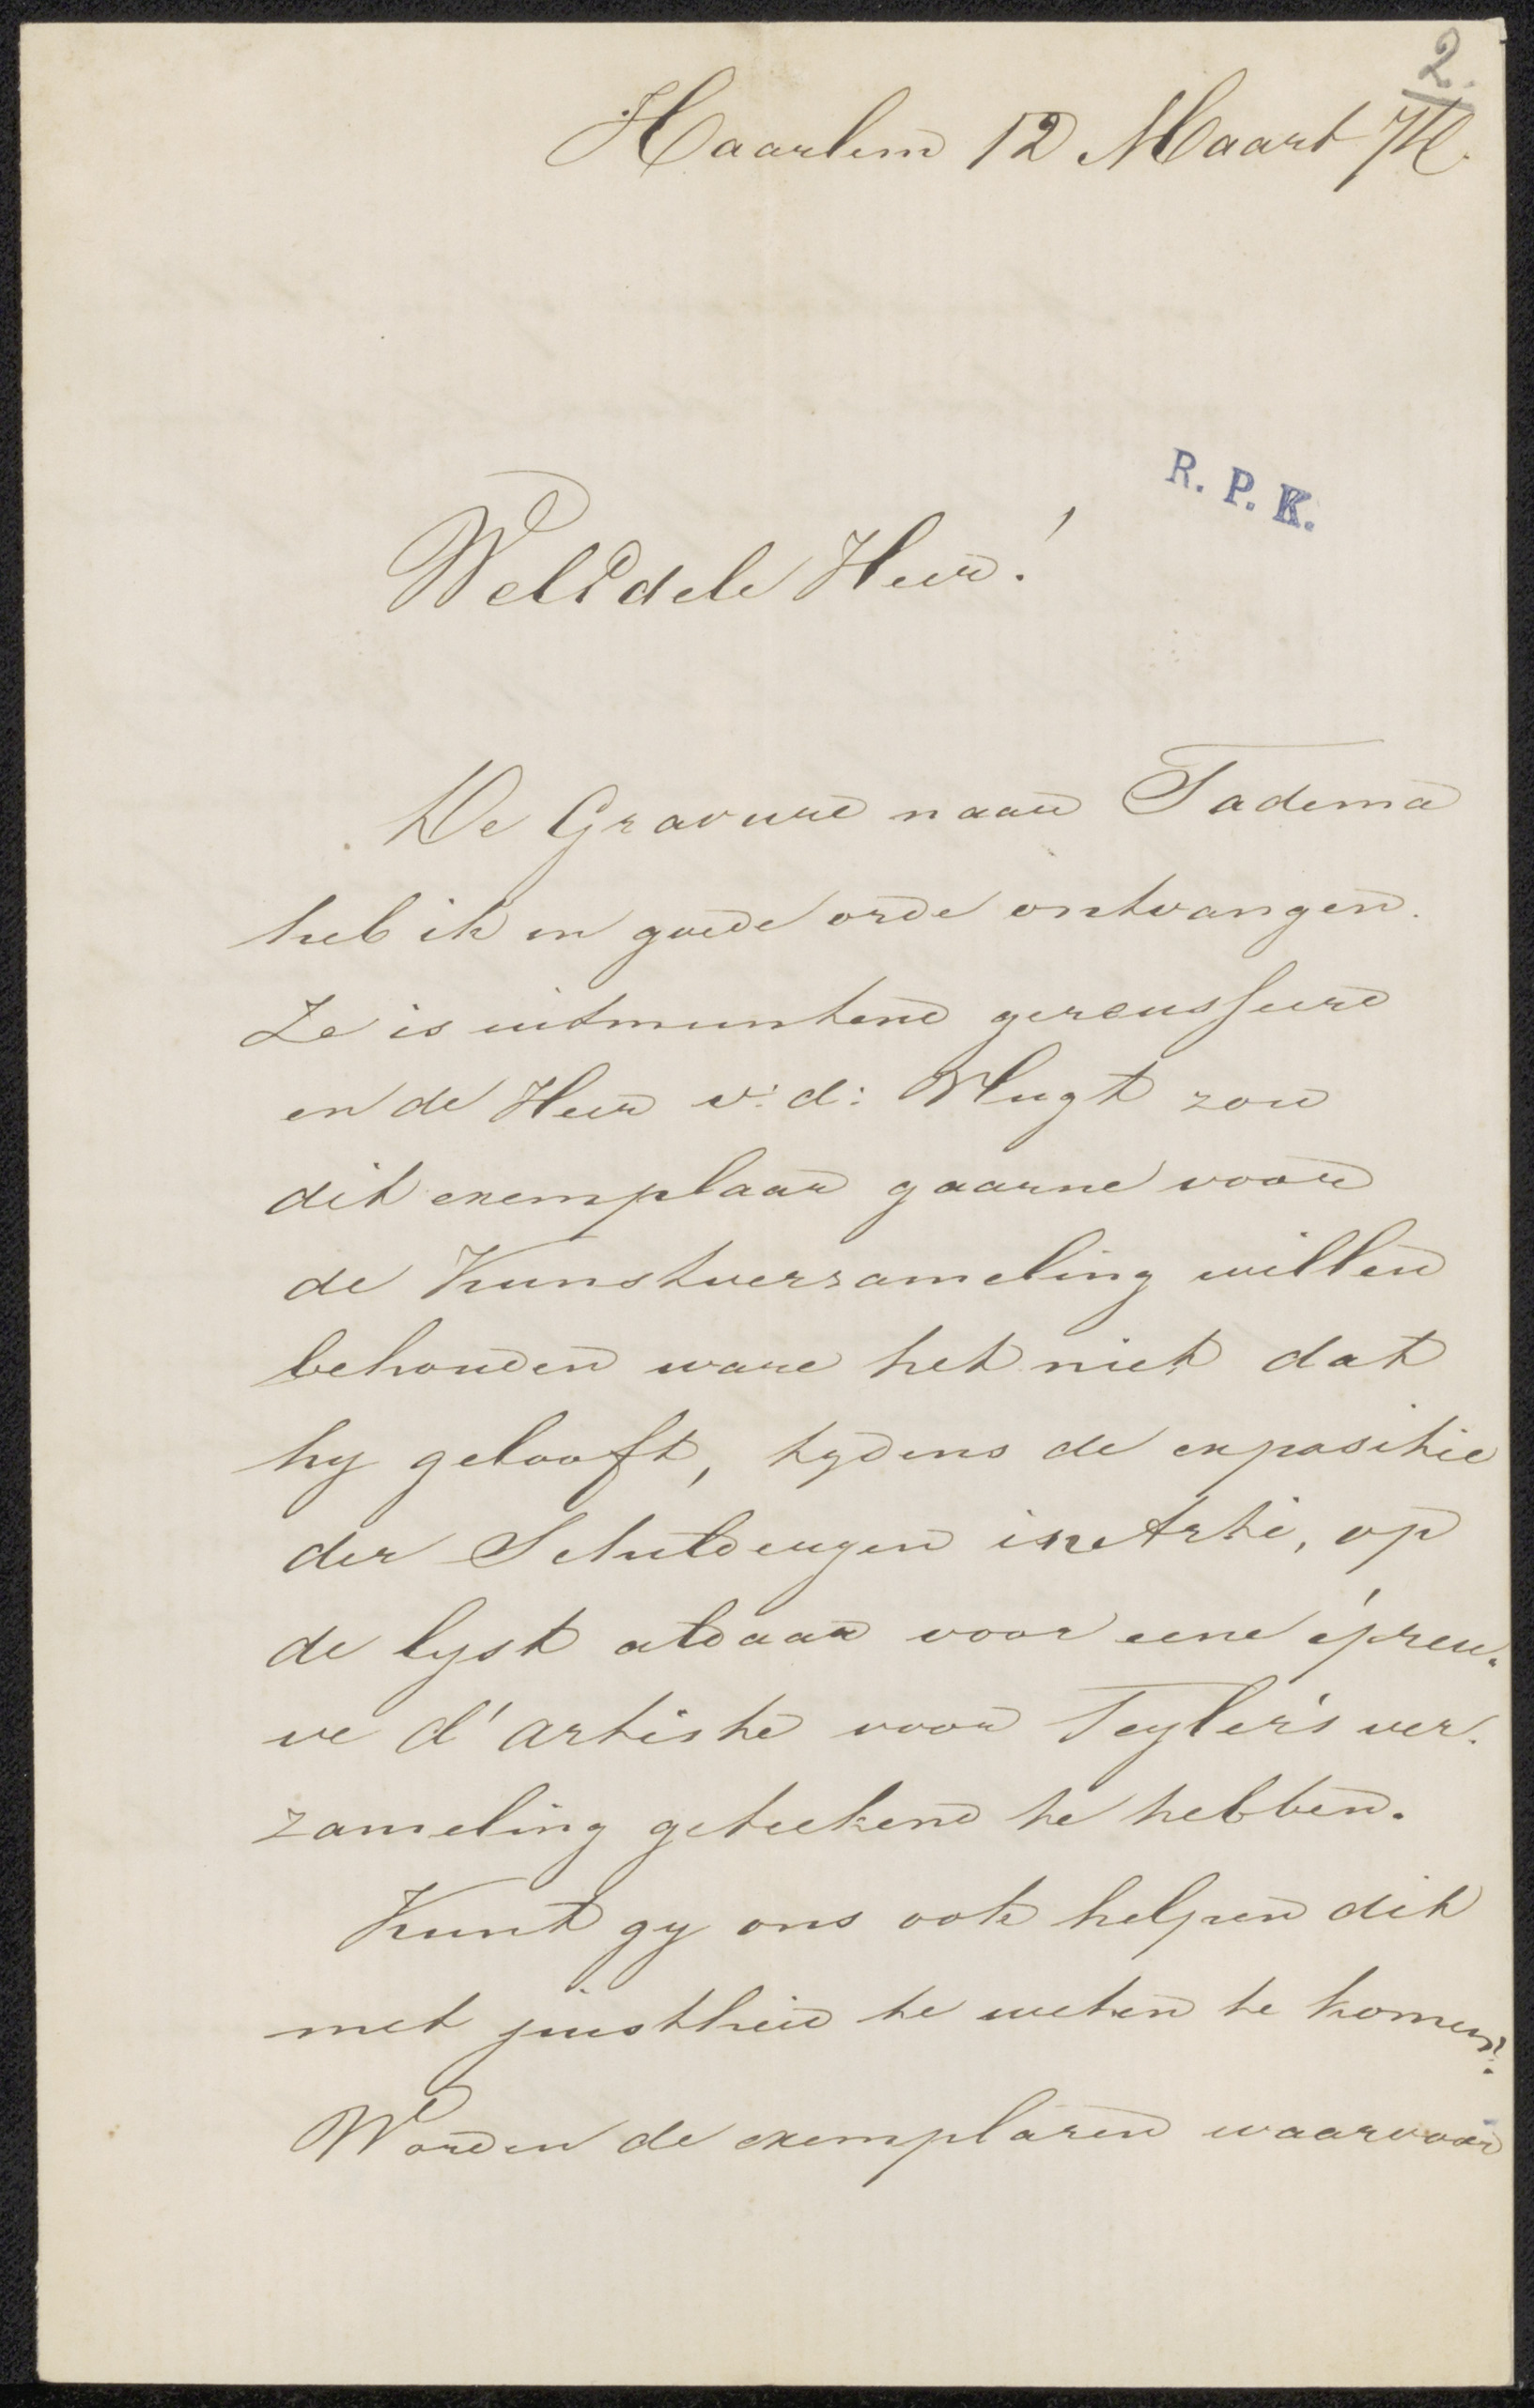 2.
Haarlem 12 Maart
R. P. K.
WelEdele Heer!
De Gravure naar Tadema
heb ik in goede orde ontvangen.
Ze is uitmuntend gereusseerd
en de Heer v: d: Vlugt zou
dit exemplaar gaarne voor
de Kunstverzameling willen
behouden ware het niet dat
hy gelooft, tydens de expositie
der Schilderyen in Arti, op
de lyst aldaar voor eene épreu-
ve d'artiste voor Teyler's ver-
zameling geteekend te hebben.
Kunt gy ons ook helpen dit
met juistheid te weten te komen?
Worden de exemplaren waarvoor